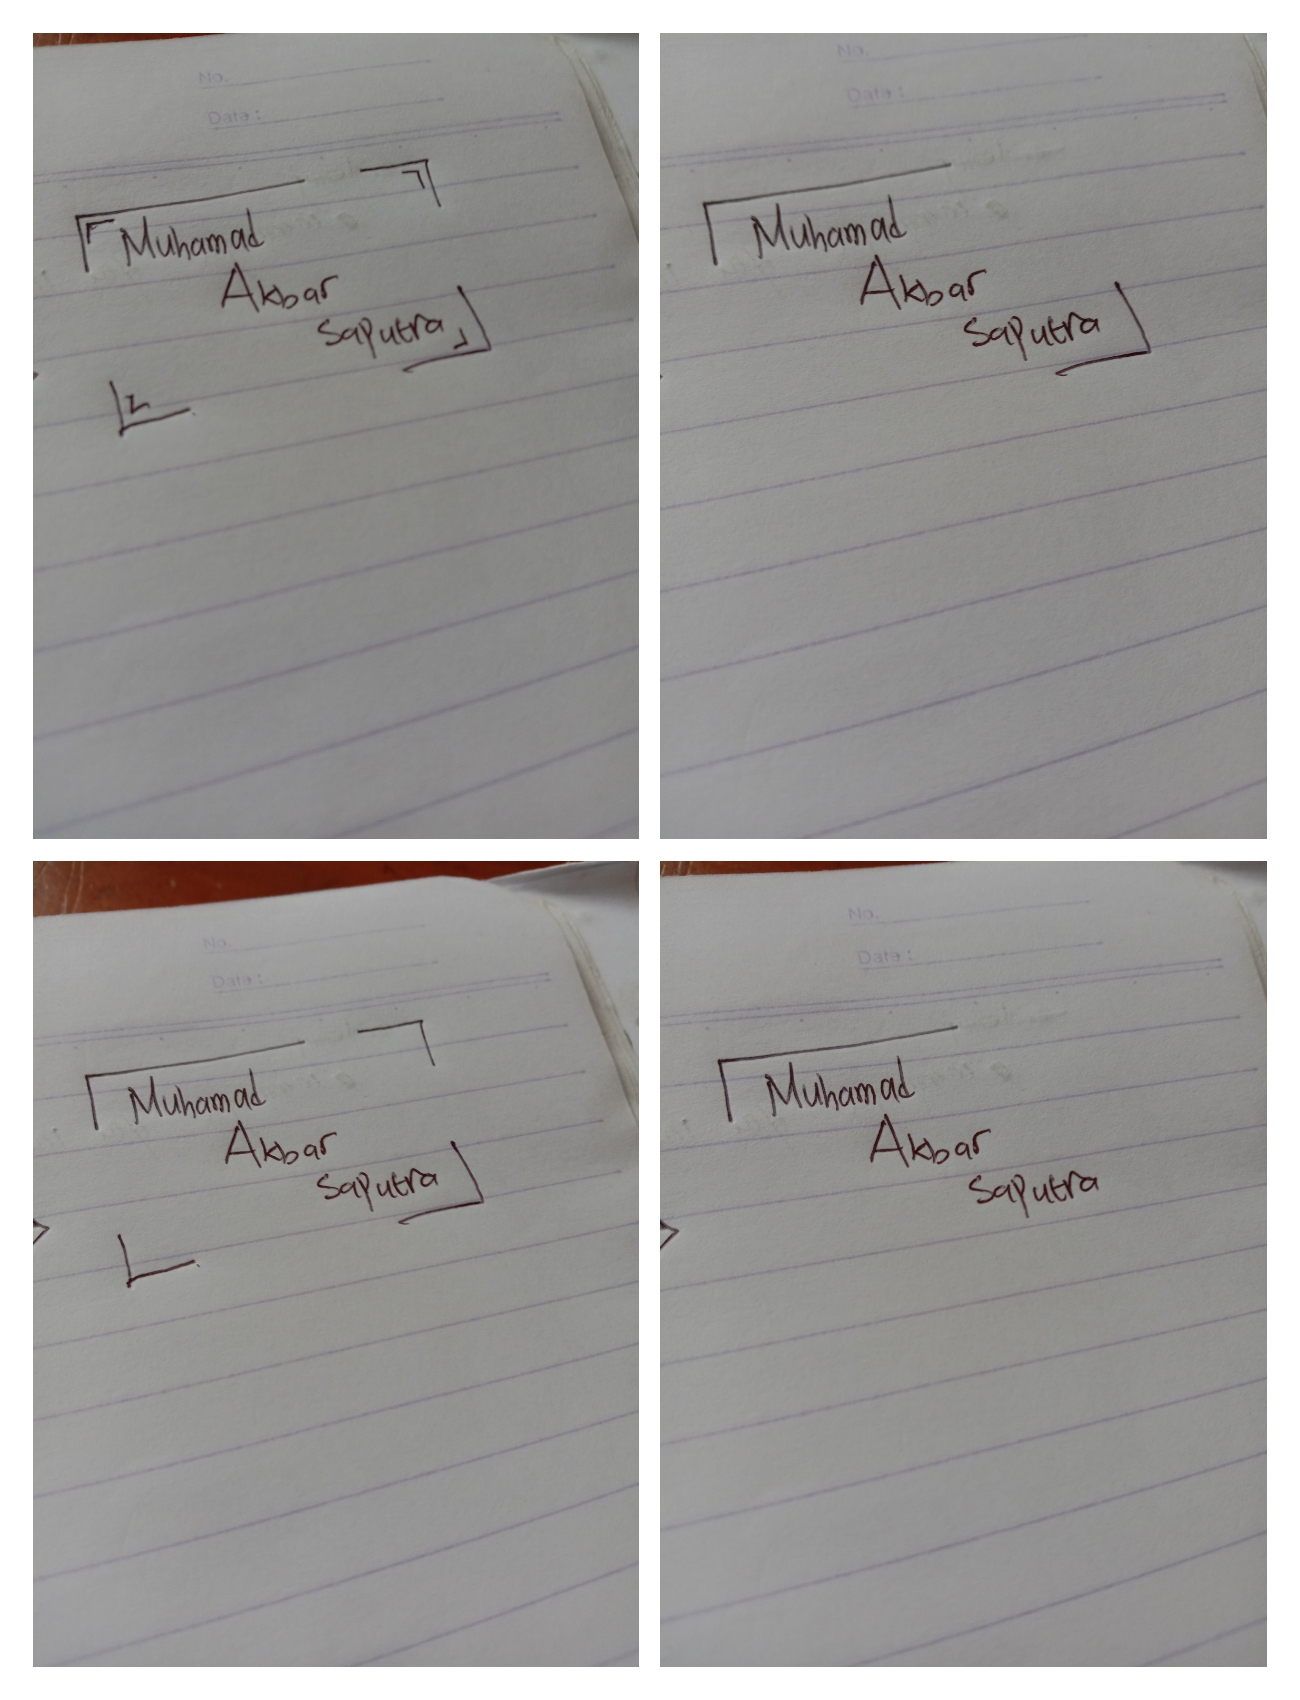 No.
Date:
Muhamad
Akbar
Saputra
No.
Date:
Muhamad
Akbar
Saputra
No.
Date:
Muhamad
Akbar
Saputra
No.
Date:
Muhamad
Akbar
Saputra